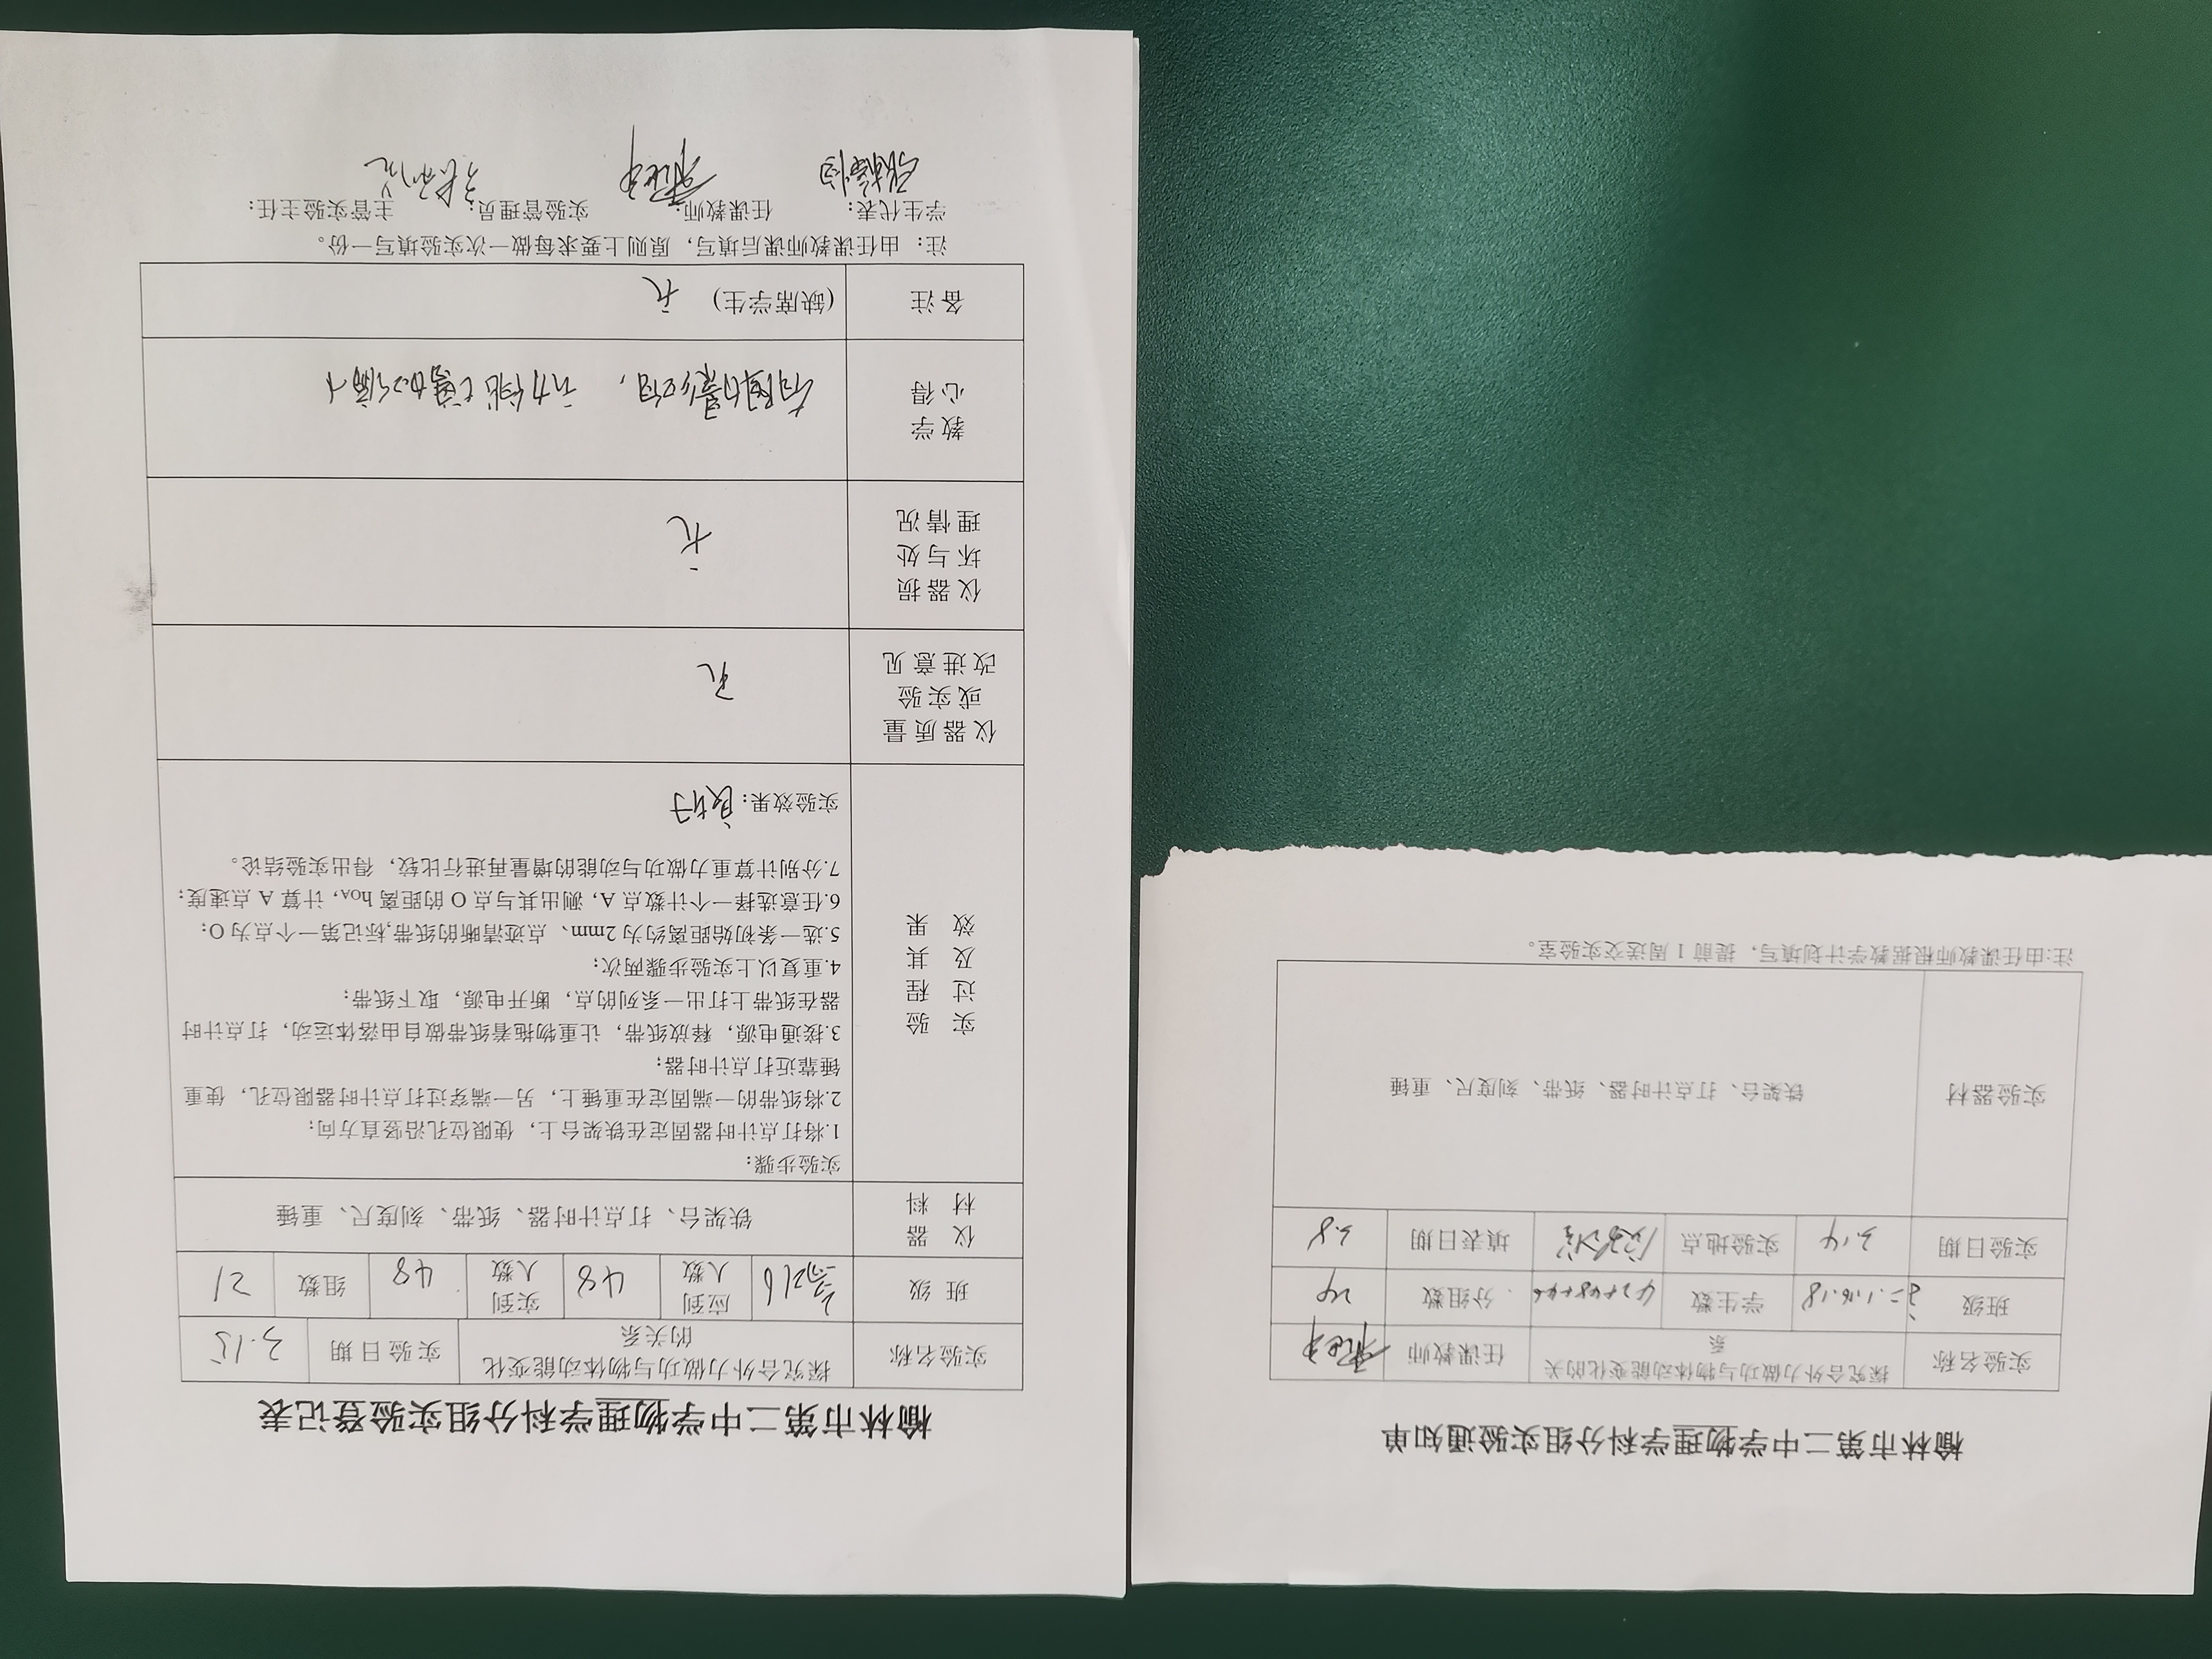 榆林市第二中学物理学科分组实验登记表
实验名称 探究合外力做功与物体动能变化的关系 实验日期 3.15
班级 应到人数 48 实到人数 48 组数 21
仪器材料 铁架台、打点计时器、纸带、刻度尺、重锤
实验过程及其效果
实验步骤：
1.将打点计时器固定在铁架台上，使限位孔沿竖直方向；
2.将纸带的一端固定在重锤上，另一端穿过打点计时器限位孔，使重
锤靠近打点计时器；
3.接通电源，释放纸带，让重物拖着纸带做自由落体运动，打点计时
器在纸带上打出一系列的点，断开电源，取下纸带；
4.重复以上实验步骤两次；
5.选一条初始距离约为2mm、点迹清晰的纸带,标记第一个点为O；
6.任意选择一个计数点A，测出其与点O的距离hOA，计算A点速度；
7.分别计算重力做功与动能的增量再进行比较，得出实验结论。
实验效果：良好
仪器质量或实验改进意见 无
仪器损坏与处理情况 无
教学心得 有阻力影响，动能增加总偏小
备注 (缺席学生) 无
注：由任课教师课后填写，原则上要求每做一次实验填写一份。
学生代表： 任课教师： 实验管理员： 主管实验主任：
榆林市第二中学物理学科分组实验通知单
实验名称 探究合外力做功与物体动能变化的关系 任课教师
班级 学生数 分组数 24
实验日期 3.14 实验地点 填表日期 3.8
实验器材 铁架台、打点计时器、纸带、刻度尺、重锤
注:由任课教师根据教学计划填写，提前1周送交实验室。